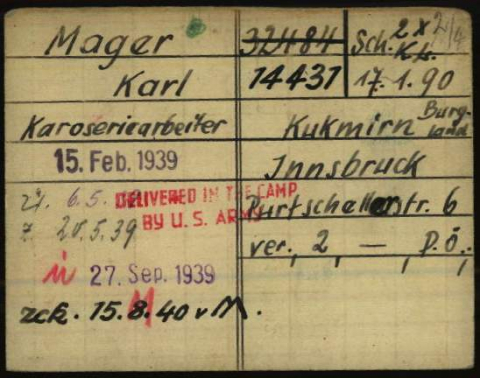 Mager
Karl
Karoseriearbeiter
15. Feb. 1939
6.5.
DELIVERED IN THE CAMP
BY U. S. ARMY
z. 20.5.39
ü 27. Sep. 1939
M
zck. 15.8.40 v M.
32484
14431
Sch. 2 x
K.
17.1.90
Kukmirn Burg-
land
Innsbruck
Purtschellerstr. 6
ver., 2, — , D.Ö.,